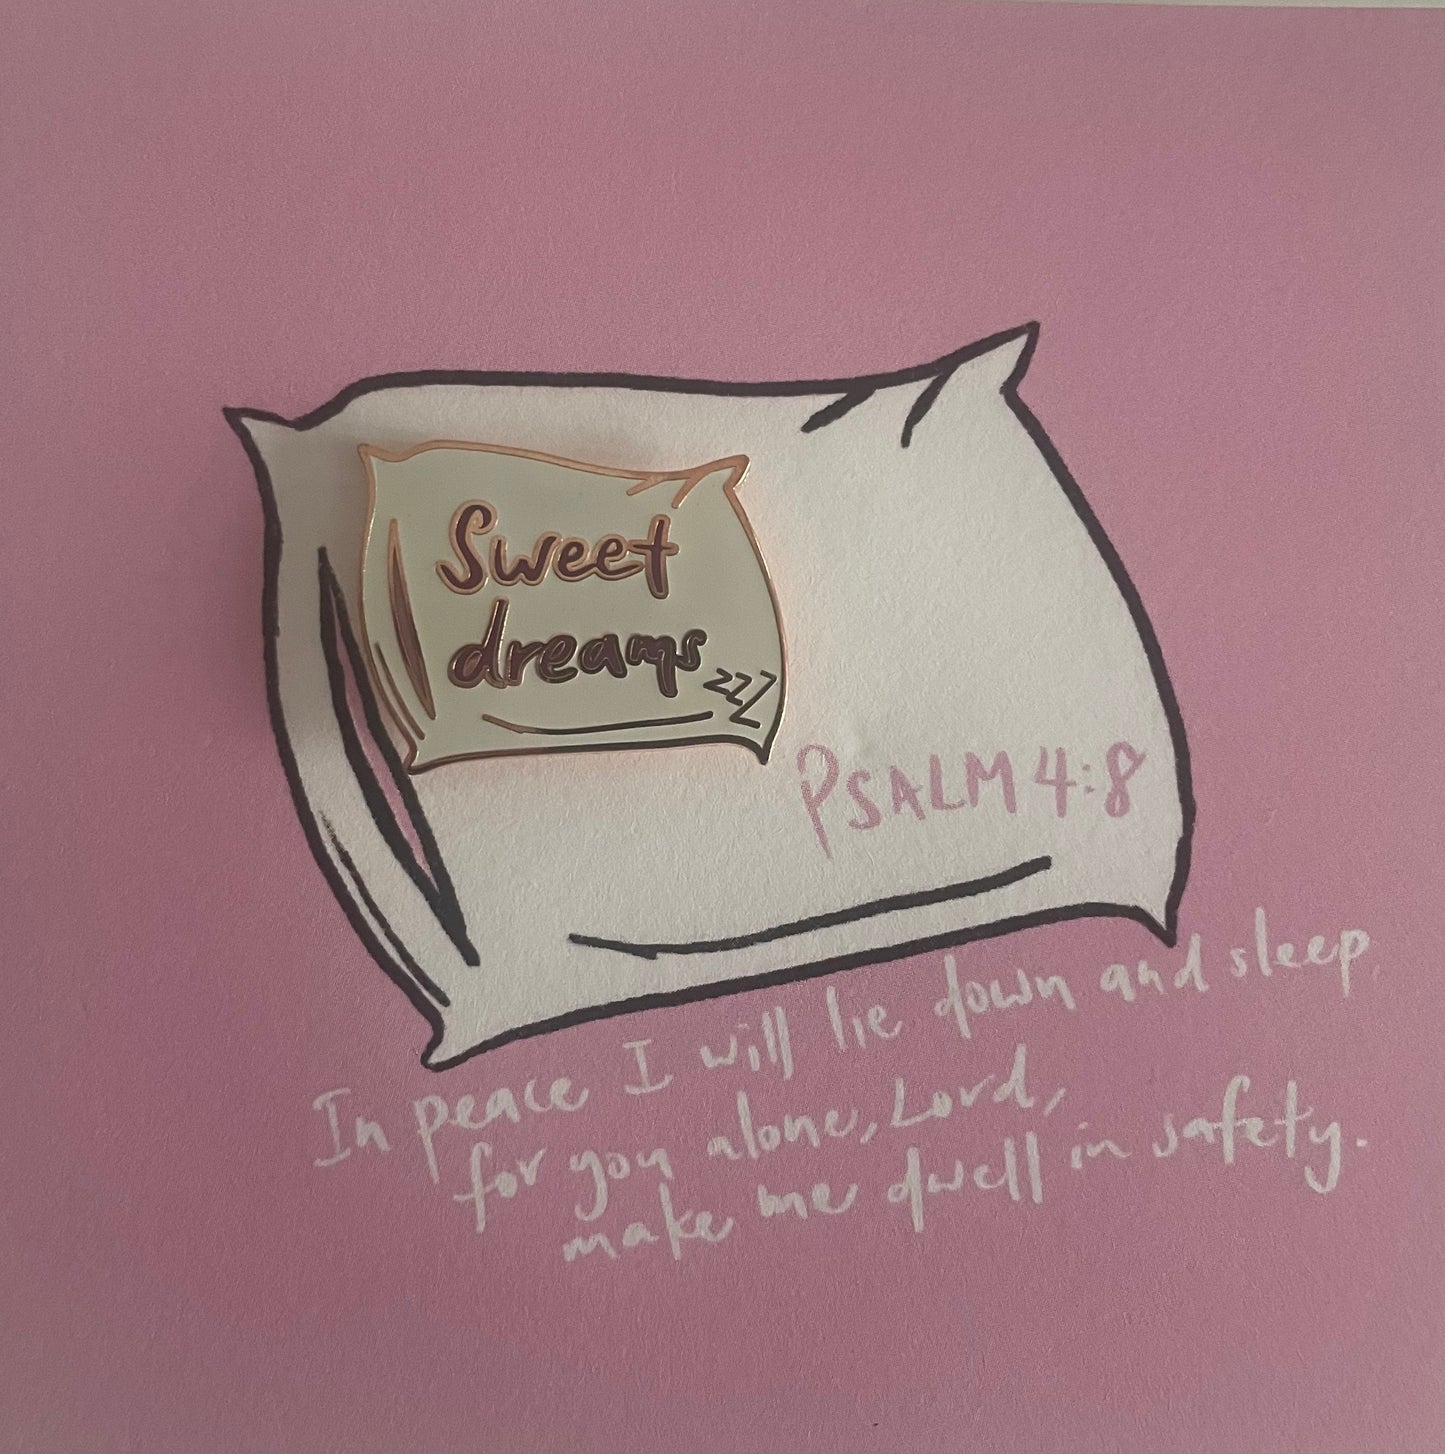 Sweet
dreams
zzZ
PSALM 4:8
In peace I will lie down and sleep,
for you alone, Lord,
make me dwell in safety.